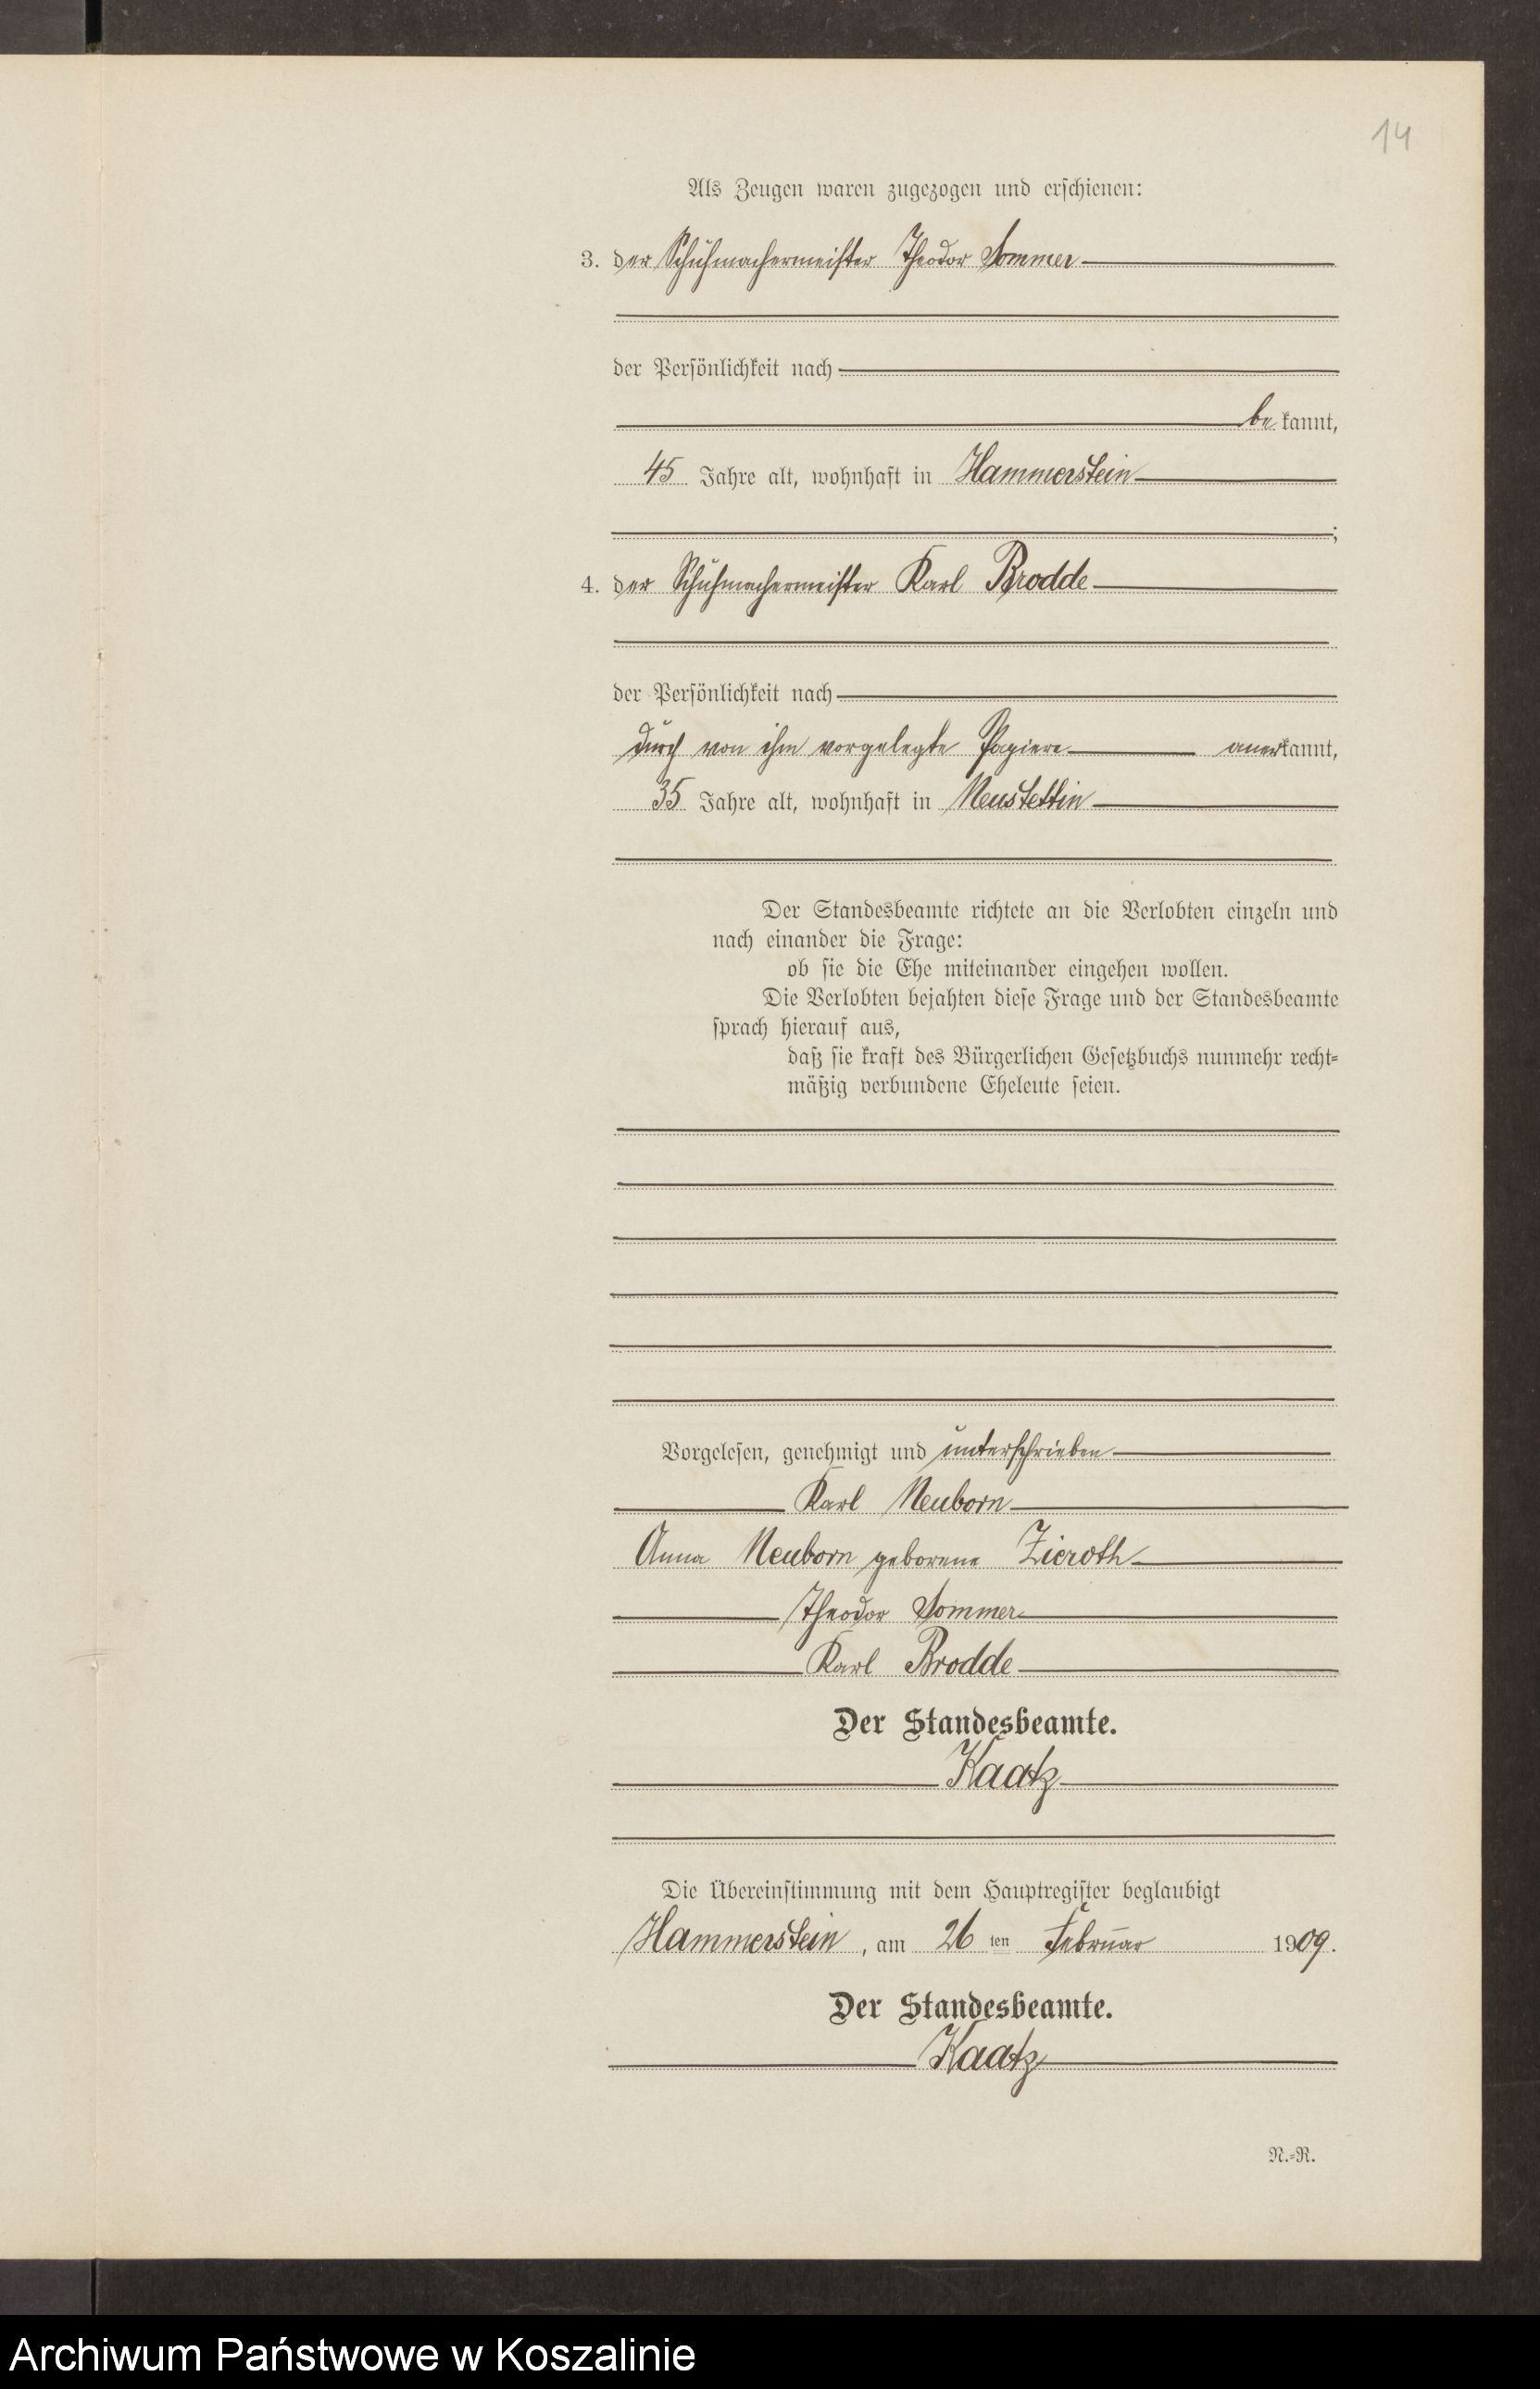 14
Als Zeugen waren zugezogen und erschienen:
3. der Schuhmachermeister Theodor Sommer
der Persönlichkeit nach
be kannt,
45 Jahre alt, wohnhaft in Hammerstein
;
4. der Schuhmachermeister Karl Brodde
der Persönlichkeit nach
durch von ihm vorgelegte Papiere anerkannt,
35 Jahre alt, wohnhaft in Neustettin
Der Standesbeamte richtete an die Verlobten einzeln und
nach einander die Frage:
ob sie die Ehe miteinander eingehen wollen.
Die Verlobten bejahten diese Frage und der Standesbeamte
sprach hierauf aus,
daß sie kraft des Bürgerlichen Gesetzbuchs nunmehr recht-
mäßig verbundene Eheleute seien.
Vorgelesen, genehmigt und unterschrieben
Karl Neuborn
Anna Neuborn geborene Zieroth
Theodor Sommer
Karl Brodde
Der Standesbeamte.
Kaatz
Die Übereinstimmung mit dem Hauptregister beglaubigt
Hammerstein, am 26 ten Februar 1909.
Der Standesbeamte.
Kaatz
N.-R.
Archiwum Państwowe w Koszalinie